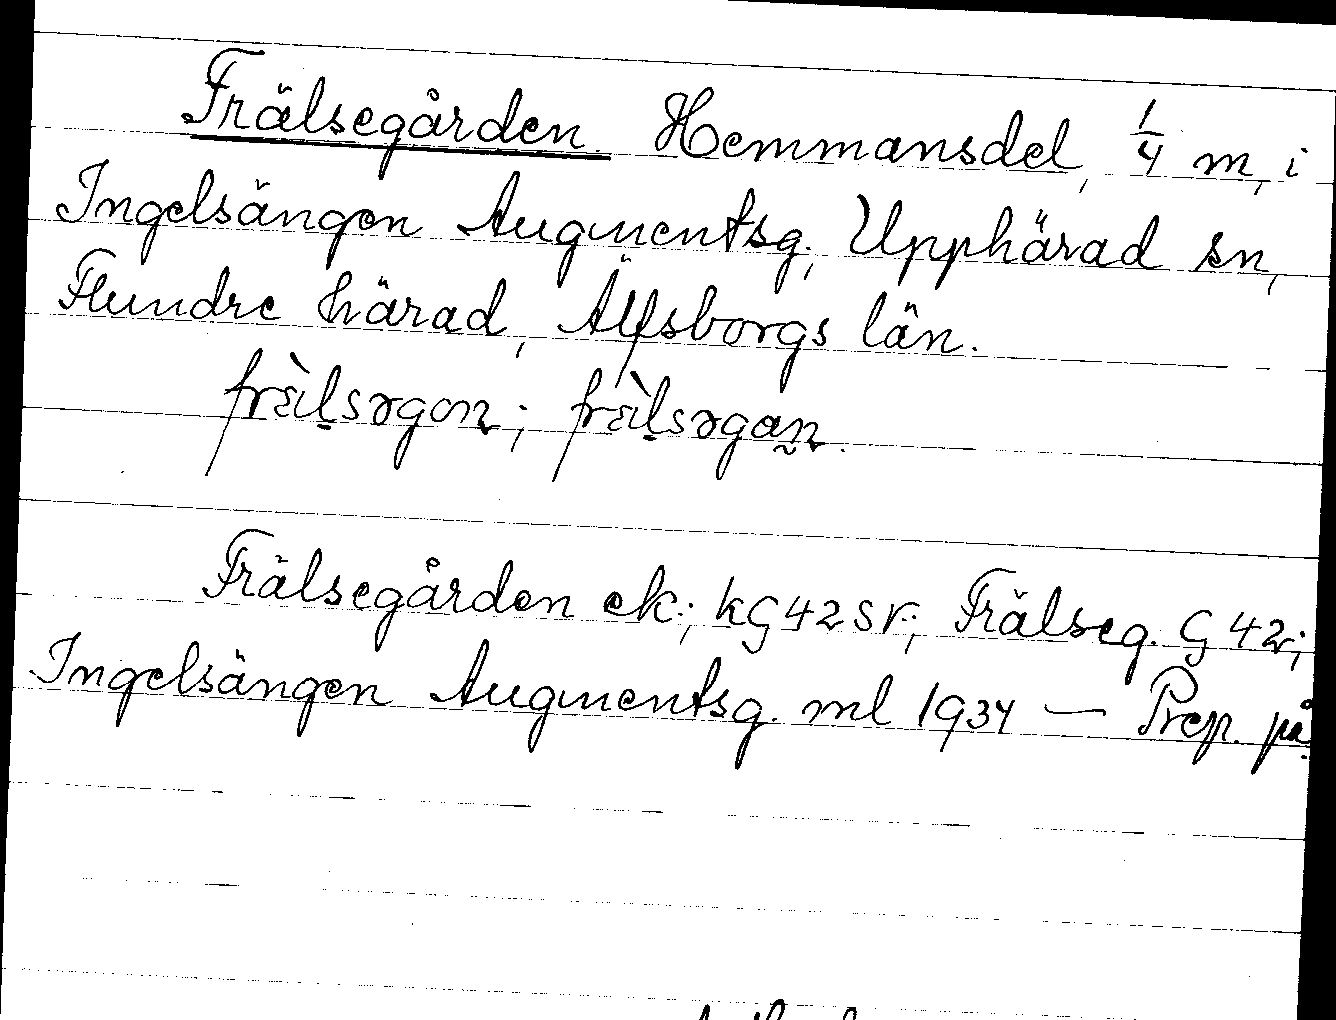 Frälsegården. Hemmansdel, 1/4 m, i
Ingelsängen Augmentsg., Upphärad sn,
Flundre härad, Älfsborgs län.
frälsəgan; frälsəgan.
Frälsegården ek.; kG42SV.; Frälseg. G42;
Ingelsängen Augmentsg. ml 1934 — Prep. på